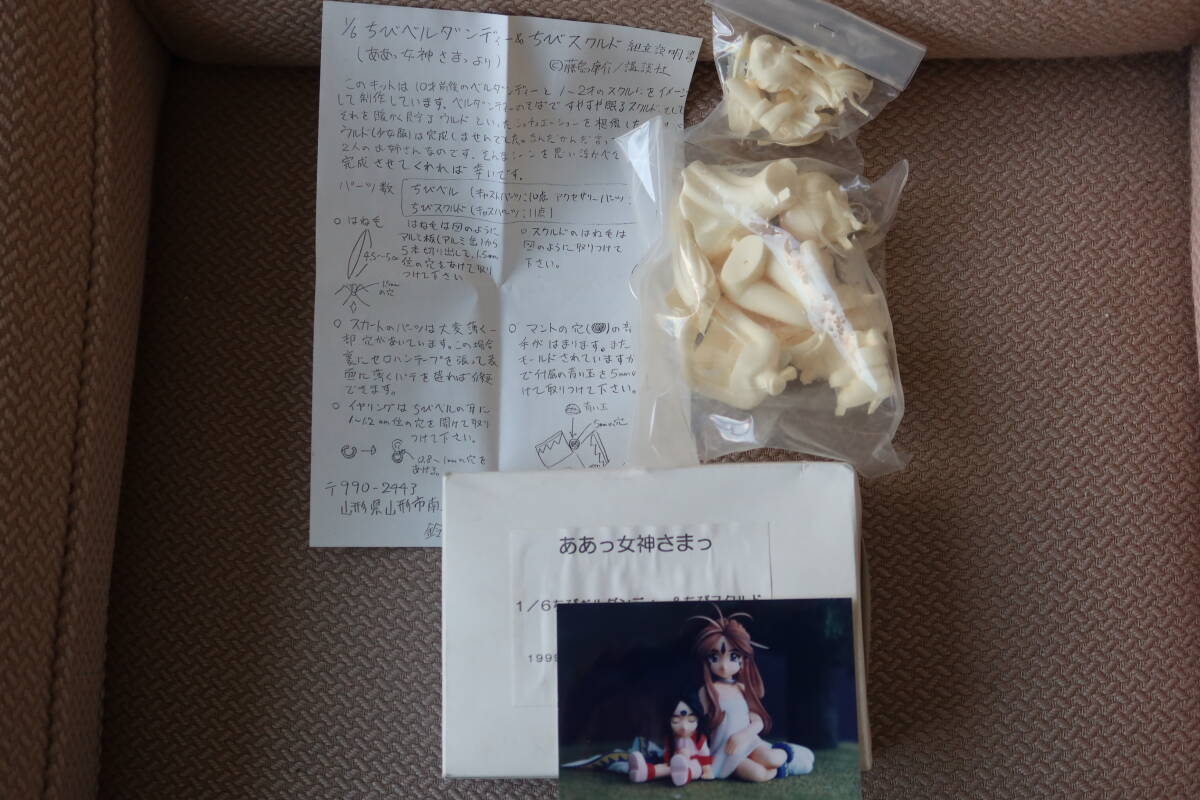 1/6 ちびベルダンディー&ちびスクルド 組立説明書
(ああっ女神さまっより) ©藤島康介/講談社
このキットは10才前後のベルダンディーと1~2才のスクルドをイメージ
して制作しています。ベルダンディーのそばですやすや眠るスクルド、そして
それを暖かく見守るウルドといったシチュエーションを想像した
ウルド(少女版)は完成しませんでした。なんだかんだ言っ
2人のお姉さんなのです。そんなシーンを思い浮かべて
完成させてくれれば幸いです。
パーツ数
ちびベル (キャストパーツ:10点 アクセサリーパーツ:
ちびスクルド(キャストパーツ:11点)
○ はね毛
はね毛は図のように
アルミ板(アルミ缶)から
5本切り出して、1.5mm
位の穴をあけて取り
つけて下さい
4.5~5cm
1.5mm
の穴
○ スクルドのはね毛は
図のように取りつけて
下さい。
○ スカートのパーツは大変薄く一
部穴があいています。この場合
裏にセロハンテープを張って表
面に薄くパテを盛れば修正
できます。
○ イヤリングはちびベルの耳に
1~1.2mm位の穴を開けて取り
つけて下さい。
0.8~1mmの穴を
あける。
○ マントの穴()の
チがはまります。また
モールドされていますが
で付属の青い玉を5mm
けて取りつけて下さい。
青い玉
5mmの穴
〒990-2443
山形県山形市南
ああっ女神さまっ
1/6ちびベルダンディー&ちびスクルド
1999